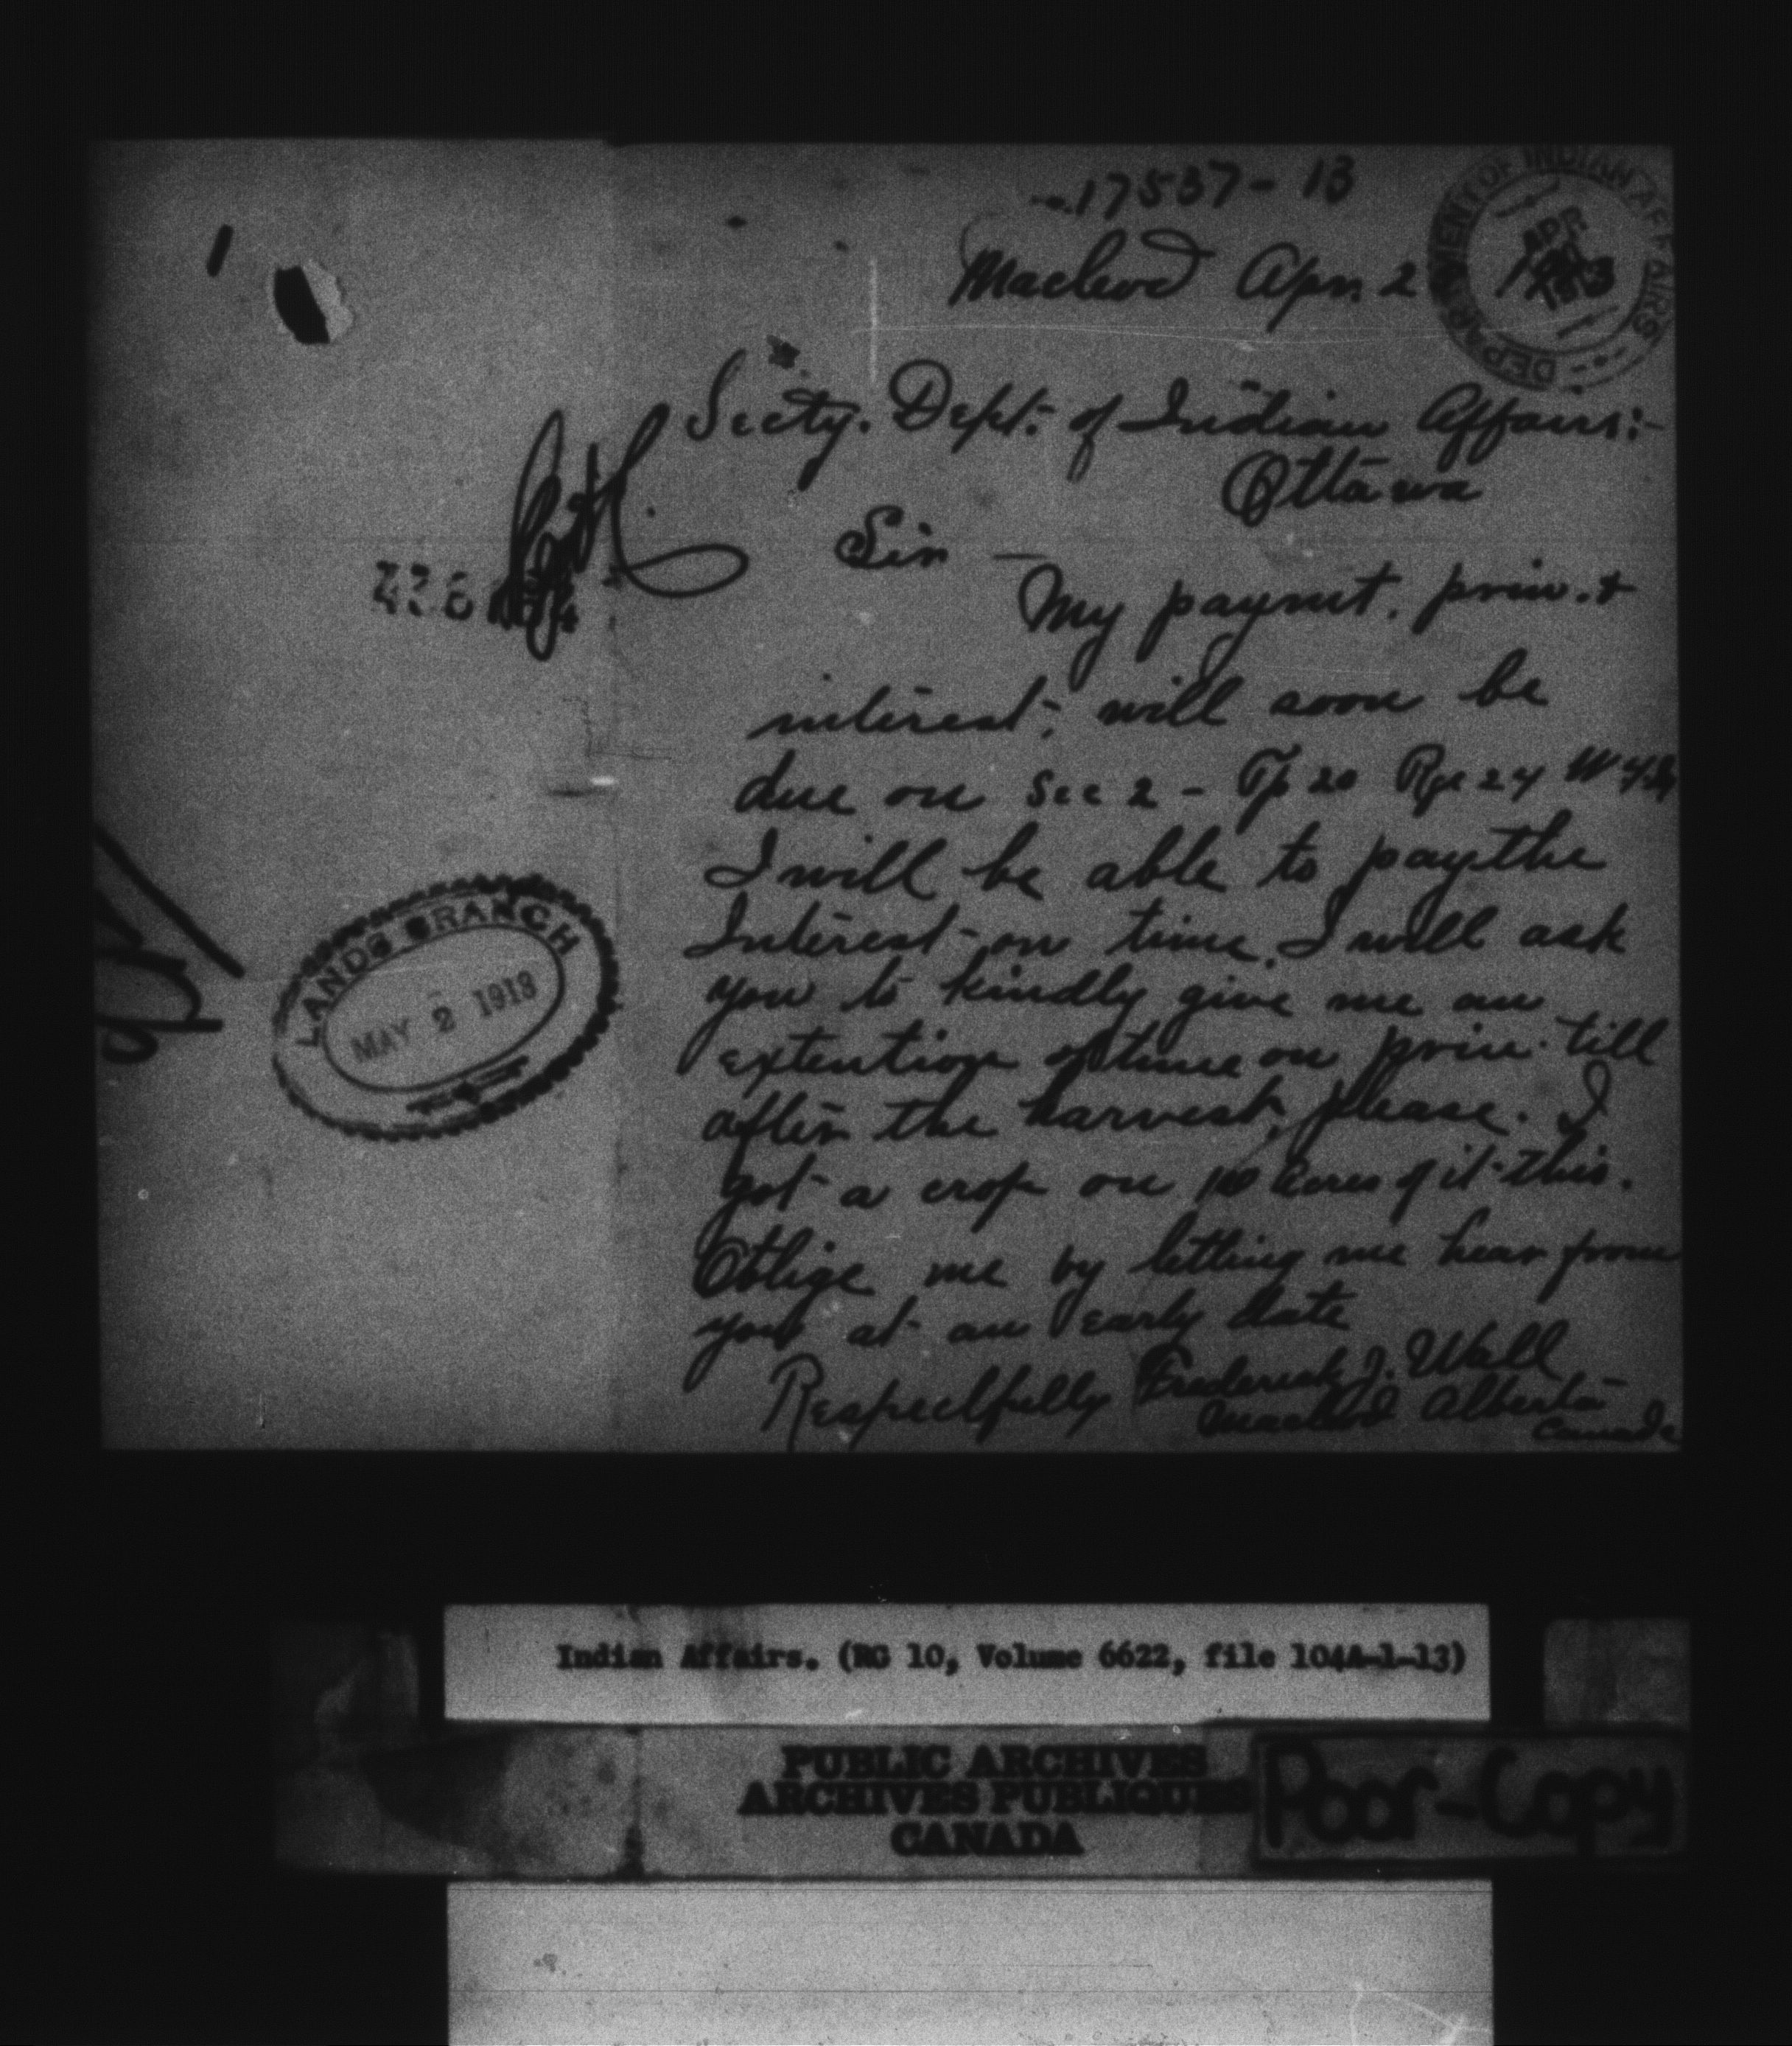 17537-13
Macleod Apr. 2 1913
DEPARTMENT OF INDIAN AFFAIRS
APR
Secty. Dept. of Indian Affairs:-
Ottawa
Sir —
My paymt. prin. +
interest; will soon be
due on Sec 2 - Tp 20 Rge 24 W 4th
I will be able to pay the
Interest on time. I will ask
you to kindly give me an
extention of time on prin. till
after the harvest, please. I
got a crop on 100 acres of it this.
Oblige me by letting me hear from
you at an early date
Respectfully Frederick J. Wall
Macleod Alberta
Canada
LANDS BRANCH
MAY 2 1913
Indian Affairs. (RG 10, Volume 6622, file 104A-1-13)
PUBLIC ARCHIVES
ARCHIVES PUBLIQUES
CANADA
Poor-Copy